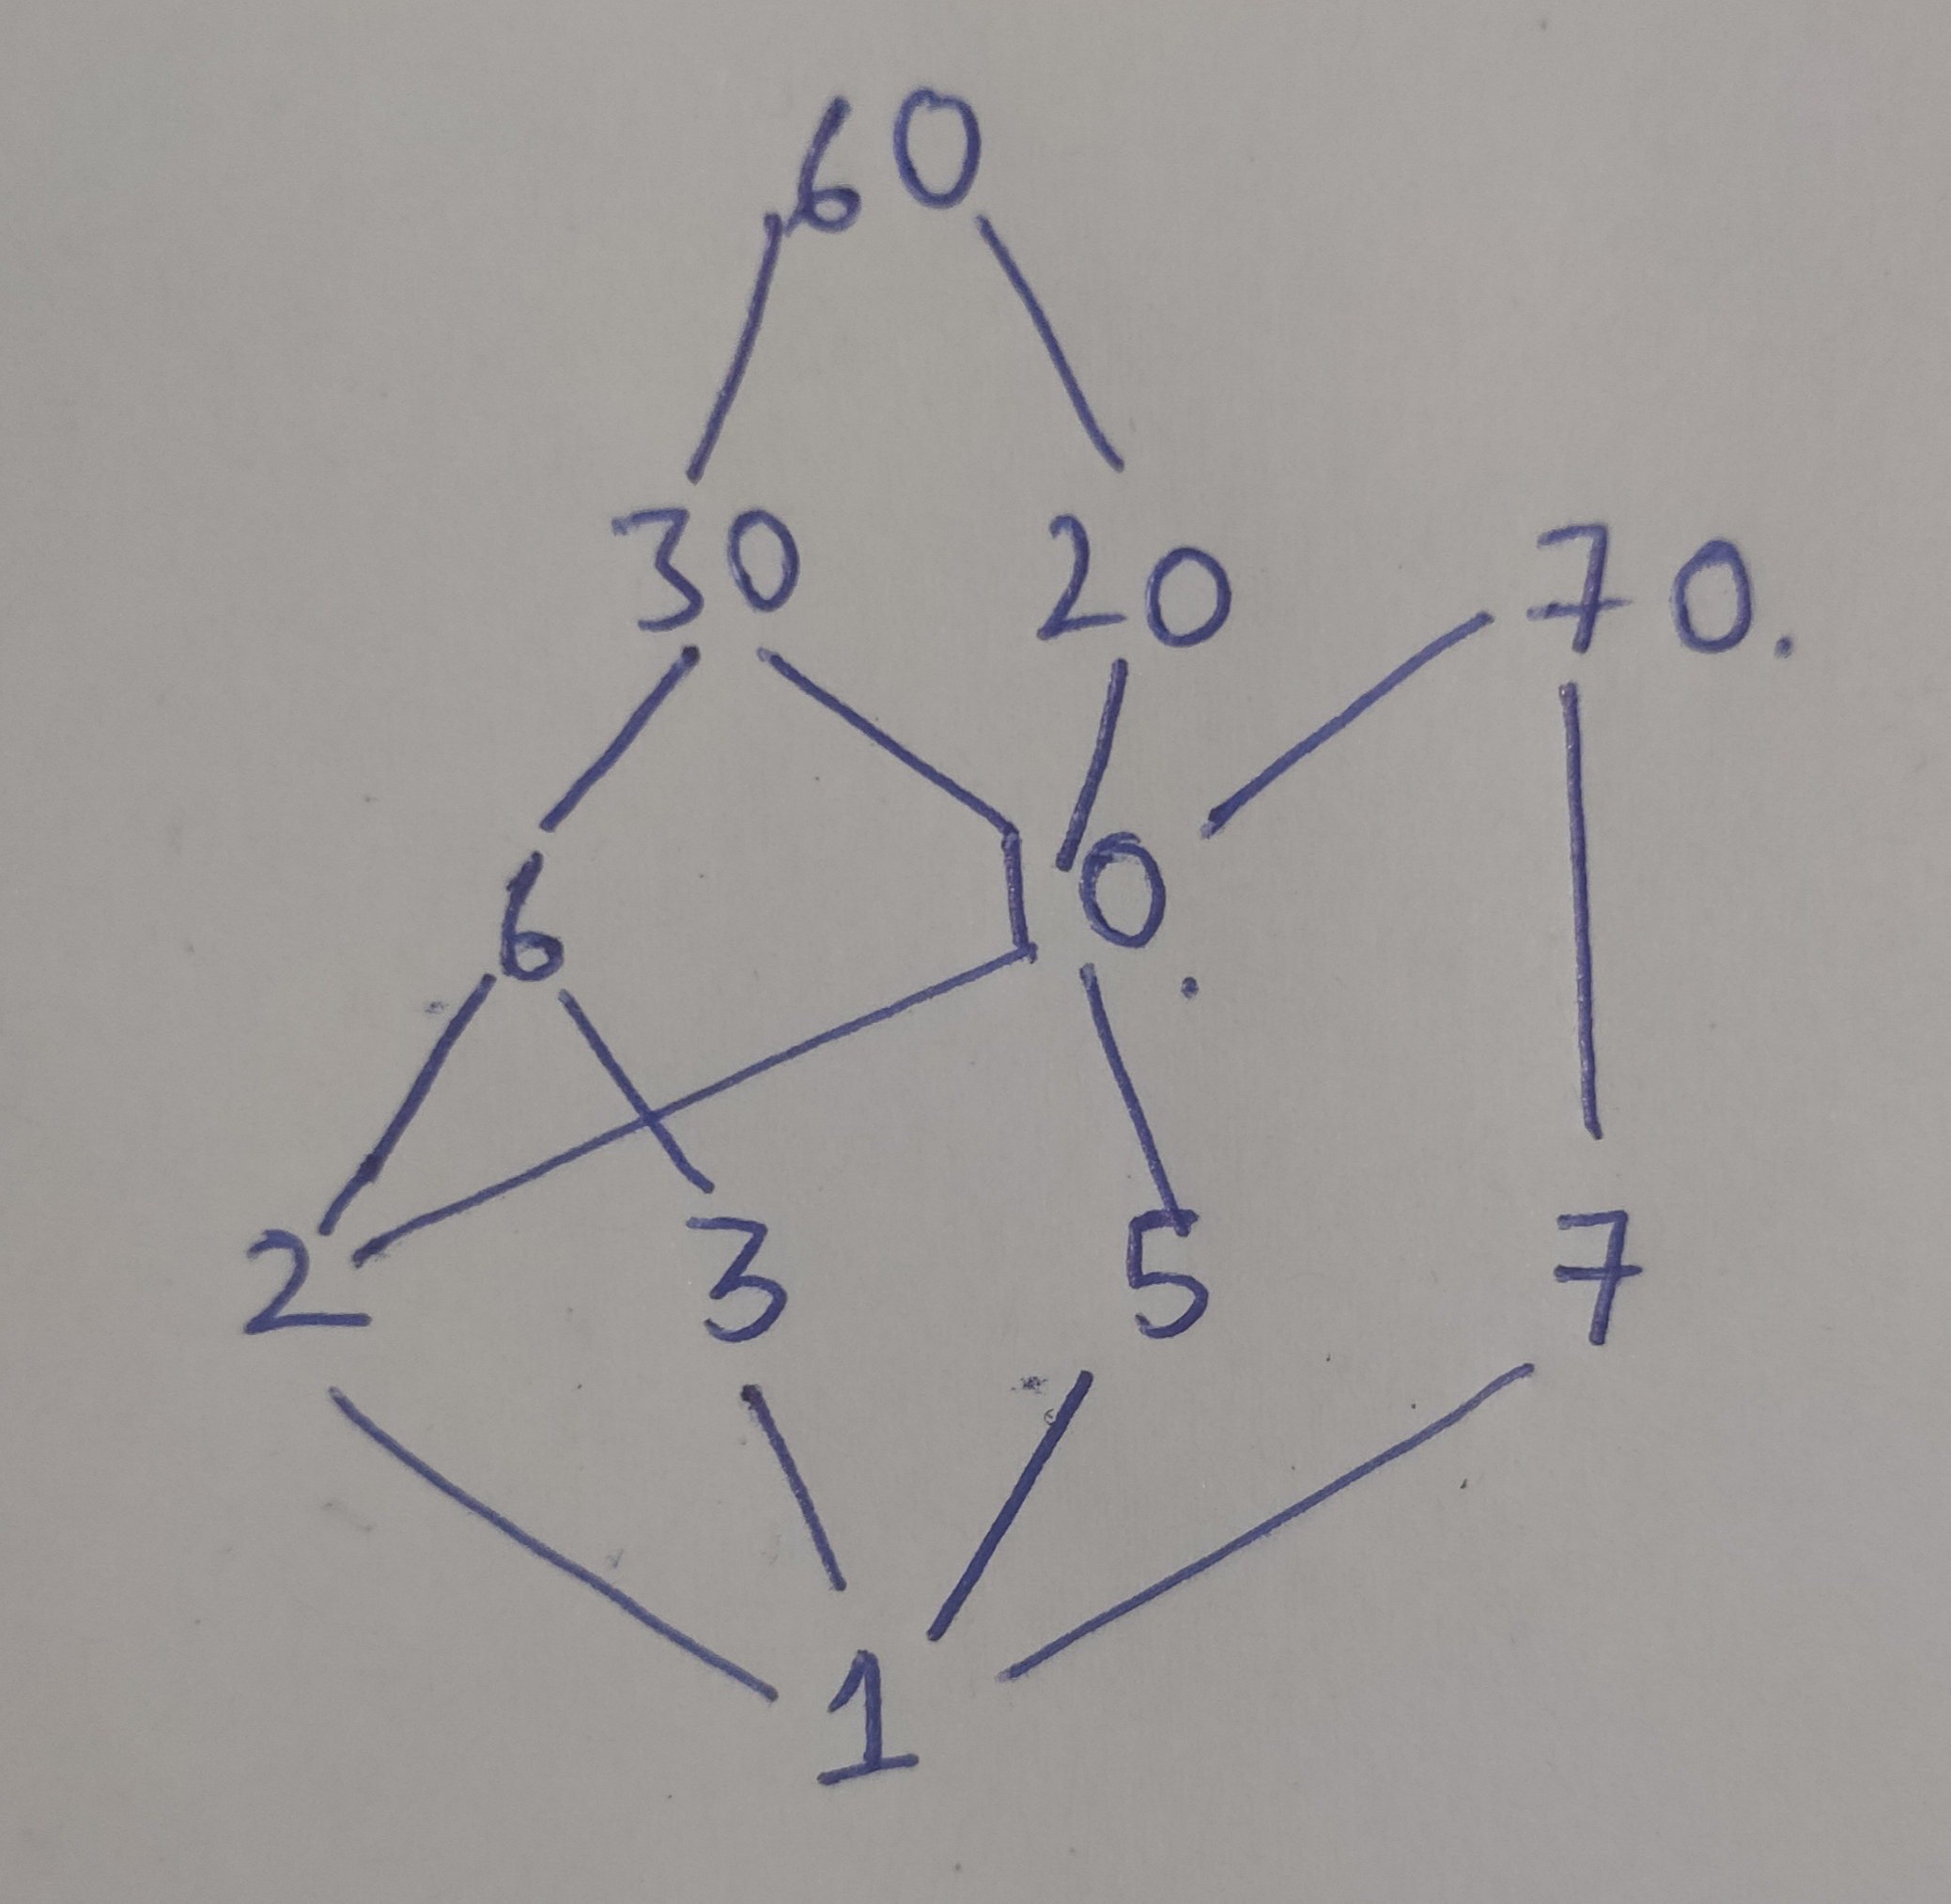 60
30 20 70.
6 10.
2 3 5 7
1